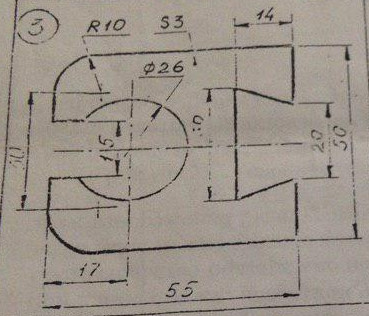 3
R10
S3
14
Φ26
30
15
30
20
50
17
55